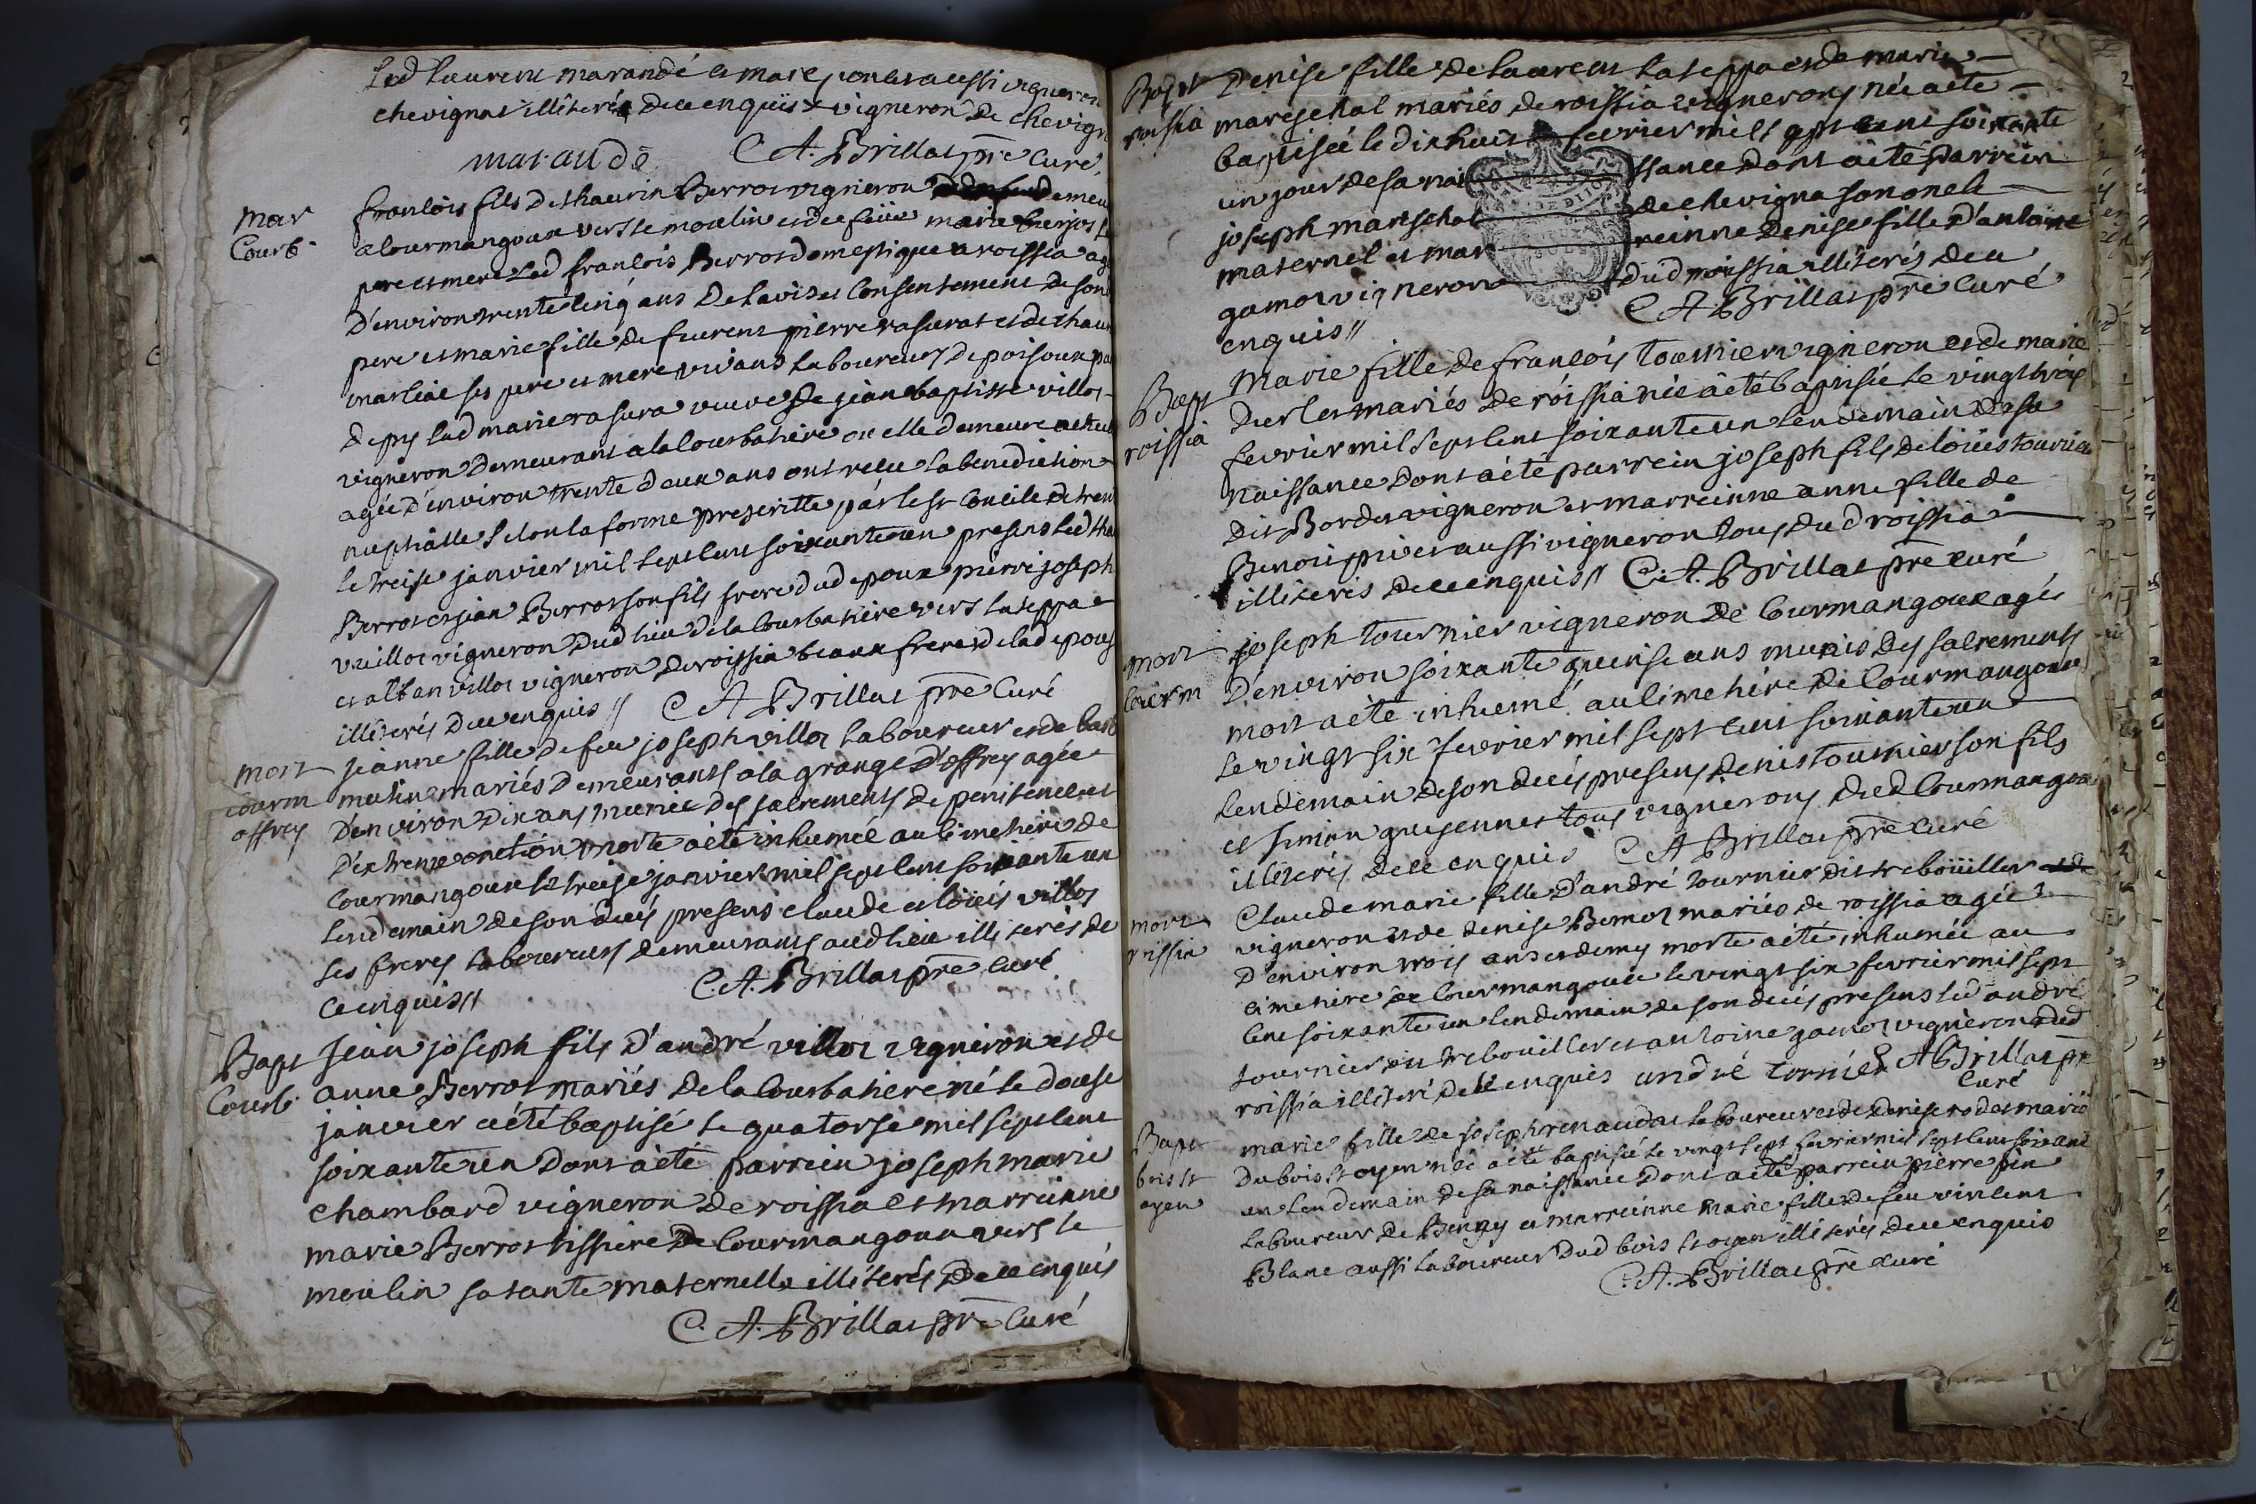 led laurent marandé et marc poncet aussi vigneron
chevignat illiterés de ce enquis vigneron de chevign
marandé C. A. Brillat pre Curé
Mar
Courb
francois fils de thaurin Berrot vigneron demeu
a Courmangoux vers le moulin et de feüe marie berjot
pere et mere led francois Berrot domestique a roissia ag
D'environ trente cinq ans De lavis et Consentement De son
pere et marie fille de feu rent pierre rasurat et de
ses pere et mere vivans laboureurs de poisoux
lad marie rasura veuve De jean baptiste villot
vigneron Demeurant a la Courbatiere ou elle demeure
agée D'environ trente deux ans ont recu la benediction
nuptialle selon la forme prescritte par le st Concile de tren
le treise janvier mil sept cent soixante un presens led
Berrot et jean Berrot son fils frere dud epoux pierre joseph
vuillot vigneron Dud lieu De la Courbatiere vers la teppa
et alban villot vigneron de roissia beaux freres de lad epouse
illiterés de ce enquis // C A Brillat pre Curé
Mort
courm
offrey
jeanne fille De feu joseph villot laboureur et de
mutin mariés Demeurants a la grange D'offrey agée
D'environ Dix ans munie Des sacrements De penitence et
D'extreme onction morte a été inhumée au Cimetiere de
Courmangoux le treise janvier mil sept cent soixante un
lendemain de son décés presens claude et loüis villot
ses freres laboureurs demeurants aud lieu illiterés de
ce enquis // C. A. Brillat pre Curé
Bapt
Courb.
Jean joseph fils D'andré villot vigneron et de
anne Berrot mariés De la Courbatiere né le douse
janvier a été baptisé le quatorse mil sept cent
soixante un Dont a été parrein joseph marie
Chambard vigneron De roissia et marreinne
marie Berrot tissiere De Courmangoux vers le
moulin sa tante maternelle illiterés De ce enquis
C. A. Brillat pre Curé
Bapt
roissia
Denise fille De laurent la teppa et de marie
mareschal mariés de roissia vignerons née a été
baptisée le dix huit fevrier mil sept cent soixante
un jour de sa nai ssance dont a été parrein
joseph mareschal de chevigna son oncle
maternel et mar reinne Denise fille D'antoine
gamot vigneron dud roissia illiterés de ce
enquis // C A Brillat pre Curé
Bapt
roissia
Marie fille de francois tournier vigneron et de marie
mariés De roissia née a été baptisée le vingt trois
fevrier mil sept cent soixante un lendemain De sa
naissance Dont a été parrein joseph fils de loüis tournier
dit Bordet vigneron et marreinne anne fille de
Benoi privet aussi vigneron tous Dud roissia
illiterés de ce enquis // C. A. Brillat pre Curé
Mort
Courm
joseph tournier vigneron De Courmangoux agés
D'environ soixante quinse ans munis Des sacrements
mort a été inhumé au Cimetiére De Courmangoux
le vingt six fevrier mil sept cent soixante un
lendemain de son décés presens Denis tournier son fils
et simon guyennet tous vignerons Dud Courmangoux
illiterés de ce enquis C A Brillat pre Curé
Mort
roissia
Claude marie fille D'andré tournier dit trebouillet
vigneron et de denise Bemot mariés de roissia agée
D'environ trois ans et demy morte a été inhumée au
cimetiere de Courmangoux le vingt six fevrier mil sept
cent soixante un lendemain de son décés presens led andré
tournier dit trebouillet et antoine gamot vigneron dud
roissia illiteré de ce enquis andré tornier C A Brillat pre
Curé
Bapt
bois st
oyen
marie fille de joseph renaudat laboureur et de Denise rodet mariés
Du bois st oyen née a été baptisée le vingt sept fevrier mil sept cent soixante
un lendemain de sa naissance Dont a été parrein pierre pin
laboureur De Beny et marreinne Marie fille de feu vincent
Blanc aussi laboureur Dud bois st oyen illiterés de ce enquis
C. A. Brillat pre curé